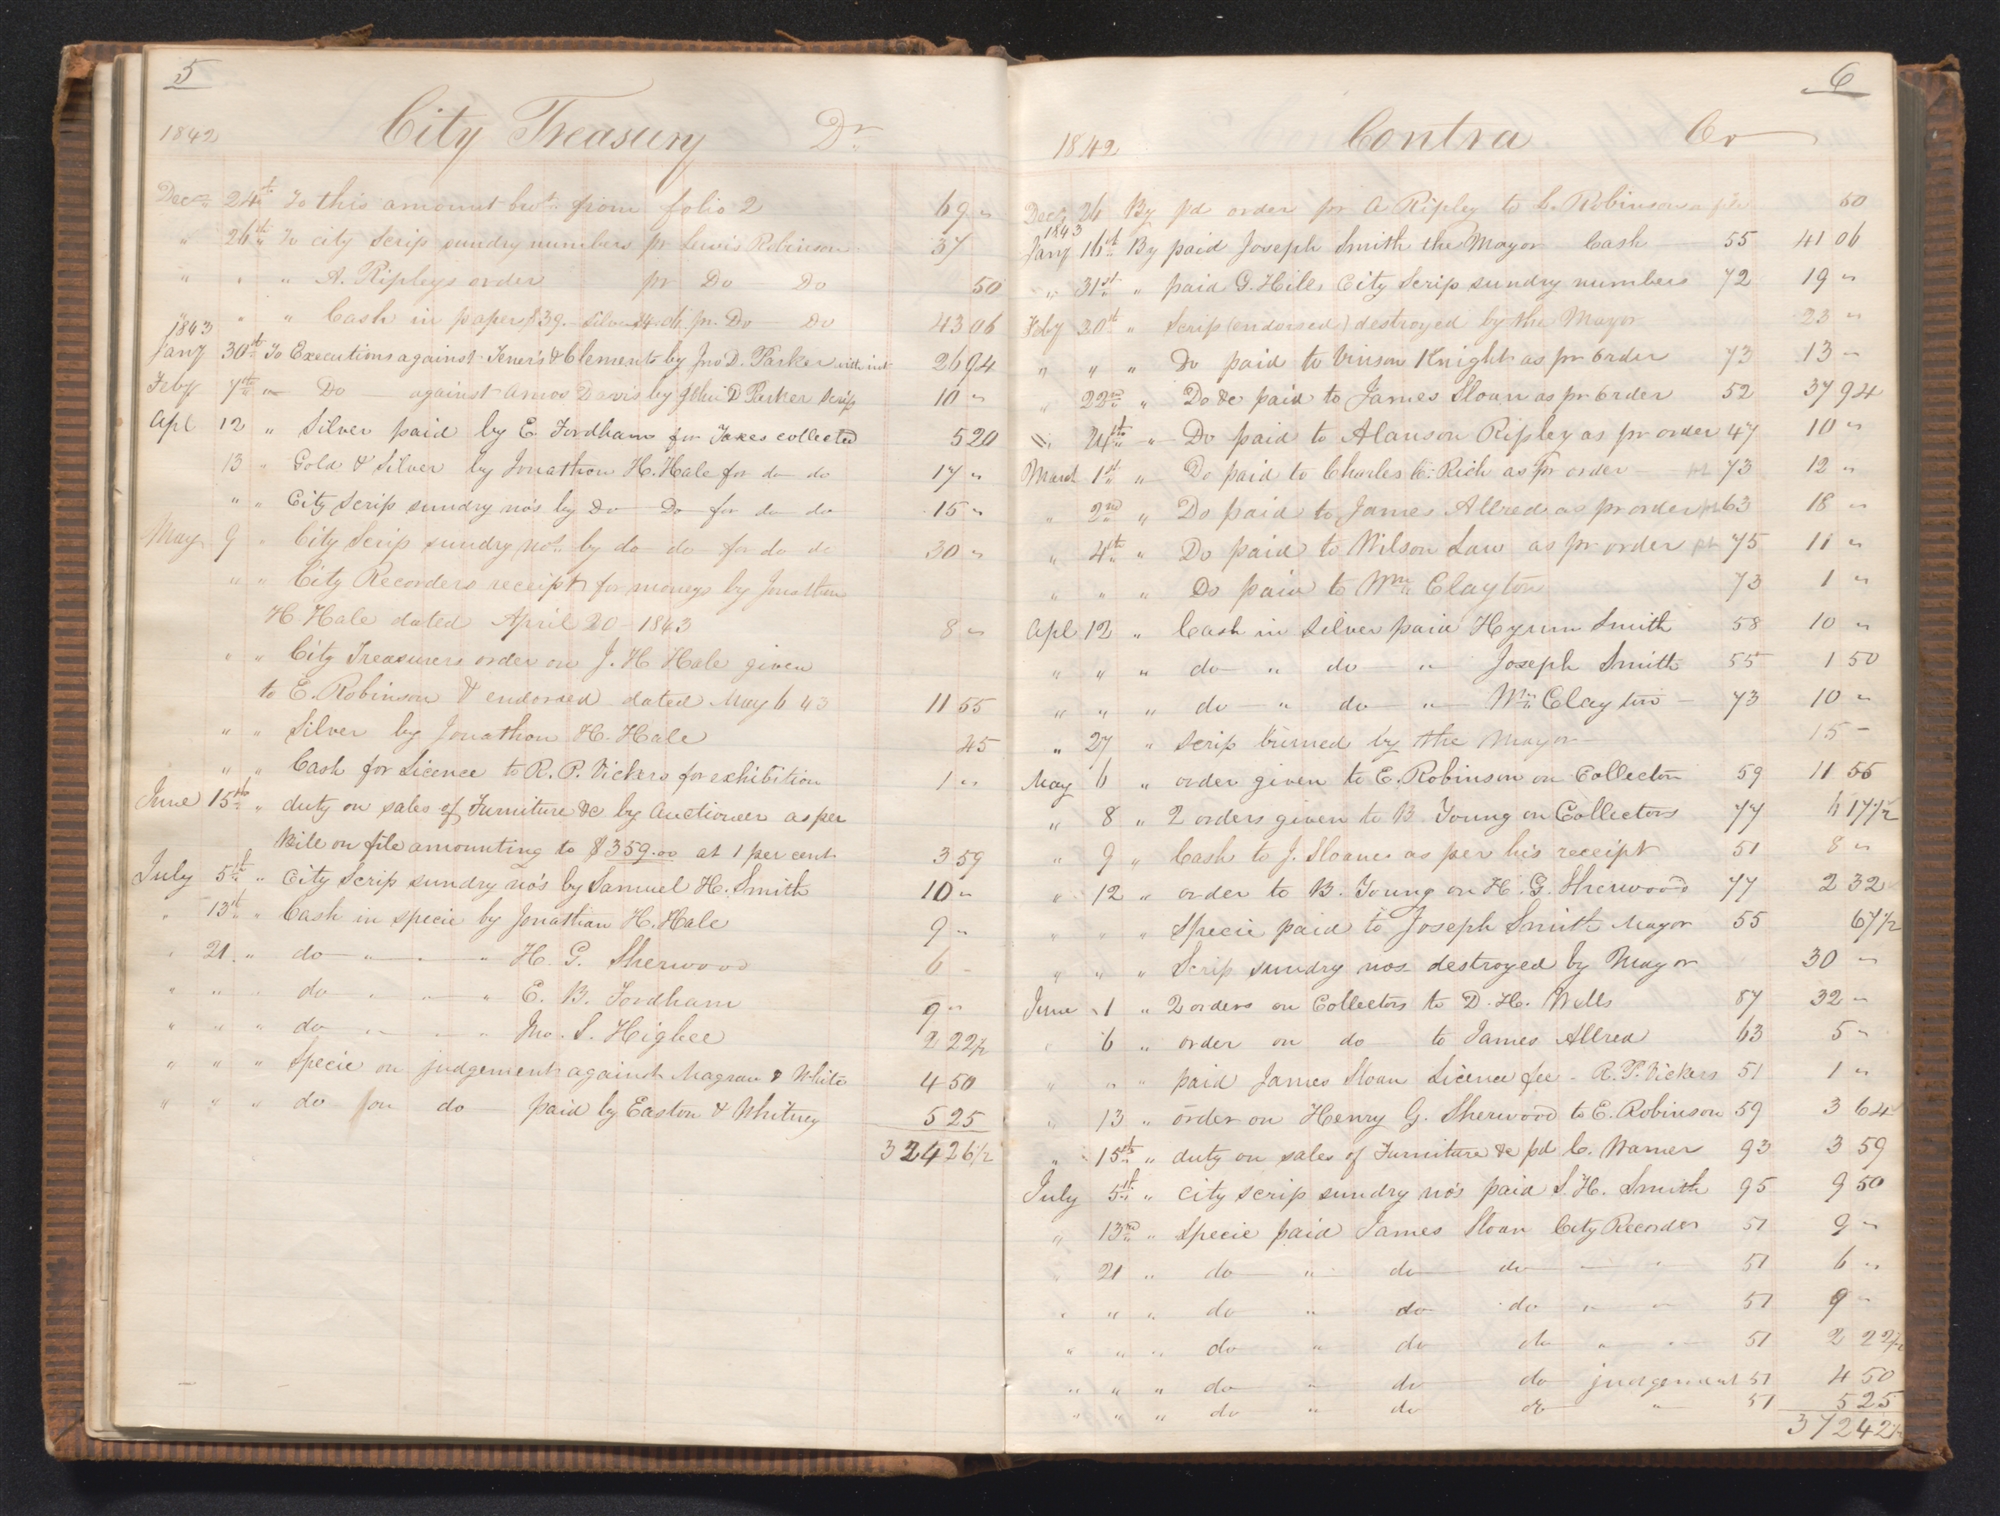 5
1842 City Treasury Dr
Decr 24th To this amount brot from folio 2 69 "
" 26th To city Scrip sundry numbers pr Lewis Robinson 37
" " " A. Ripleys order pr Do Do 50
" " " Cash in paper $39. Silver $4.06 pr. Do Do 43 06
1843
Jany 30th To Executions against Tener's & Clements by Jno D. Parker with int 26 94
Feby 7th " Do against Amos Davis by John D Parker Scrip 10 "
Apl 12 " Silver paid by E. Fordham for Taxes collected 5 20
13 " Gold & Silver by Jonathan H. Hale for do do 17 "
" " City Scrip sundry no's by Do Do for do do 15 "
May 9 " City Scrip sundry nos. by do do for do do 30 "
" " City Recorders receipt for moneys by Jonathan
H. Hale dated April 20 - 1843 8 "
" " City Treasurers order on J. H. Hale given
to E. Robinson & endorsed dated May 6 43 11 55
" " Silver by Jonathan H. Hale 45
" " Cash for Licence to R. P. Vickers for exhibition 1 "
June 15th " duty on sales of Furniture &c by Auctioneer as per
bill on file amounting to $359.00 at 1 per cent 3 59
July 5th " City Scrip sundry no's by Samuel H. Smith 10 "
" 13th " Cash in specie by Jonathan H. Hale 9 "
" 21 " do " " H. G. Sherwood 6 -
" " " do " " " E. B. Fordham 9 "
" " " do " " " Jno. S. Higbee 2 22 1/2
" " " Specie on judgement against Magraw & White 4 50
" " " do for do paid by Easton & Whitney 5 25
324 26 1/2
6
1842 Contra Cr
Decr 26 By pd order pr A Ripley to L. Robinson 50
1843
Jany 16th By paid Joseph Smith the Mayor Cash 55 41 06
" 31st " paid G. Hills City Scrip sundry numbers 72 19 "
Feby 20th " Scrip (endorsed) destroyed by the Mayor 23 "
" " " Do paid to Vinson Knight as pr order 73 13 -
" 22nd " Do &c paid to James Sloan as pr order 52 37 94
" 24th " Do paid to Alanson Ripley as pr order 47 10 "
March 1st " Do paid to Charles C. Rich as pr order 73 12 "
" 2nd " Do paid to James Allred as pr order 63 18 "
" 4th " Do paid to Wilson Law as pr order 75 11 "
" " " Do paid to Wm Clayton 73 1 "
Apl 12 " Cash in silver paid Hyrum Smith 58 10 "
" " " do " do " Joseph Smith 55 1 50
" " " do " do " Wm Clayton 73 10 "
" 27 " Scrip burned by the Mayor 15 -
May 6 " order given to E. Robinson on Collector 59 11 55
" 8 " 2 orders given to B. Young on Collectors 77 4 17 1/2
" 9 " Cash to J. Sloane as per his receipt 51 8 "
" 12 " order to B. Young on H. G. Sherwood 77 2 32
" " " Specie paid to Joseph Smith Mayor 55 67 1/2
" " " Scrip sundry nos destroyed by Mayor 30 "
June 1 " 2 orders on Collectors to D. H. Wells 87 32 "
" 6 " order on do to James Allred 63 5 "
" " " paid James Sloan Licence fee - R. P. Vickers 51 1 "
" 13 " order on Henry G. Sherwood to E. Robinson 59 3 64
" 15th " duty on sales of Furniture &c pd C. Warner 93 3 59
July 5th " City Scrip sundry no's paid S. H. Smith 95 9 50
" 13th " Specie paid James Sloan City Recorder 51 9 "
" 21 " do " do do " " 51 6 "
" " " do " do do " " 51 9 "
" " " do " do do " " 51 2 22 1/2
" " " do " do do judgement 51 4 50
" " " do " do do " 51 5 25
372 42 1/2